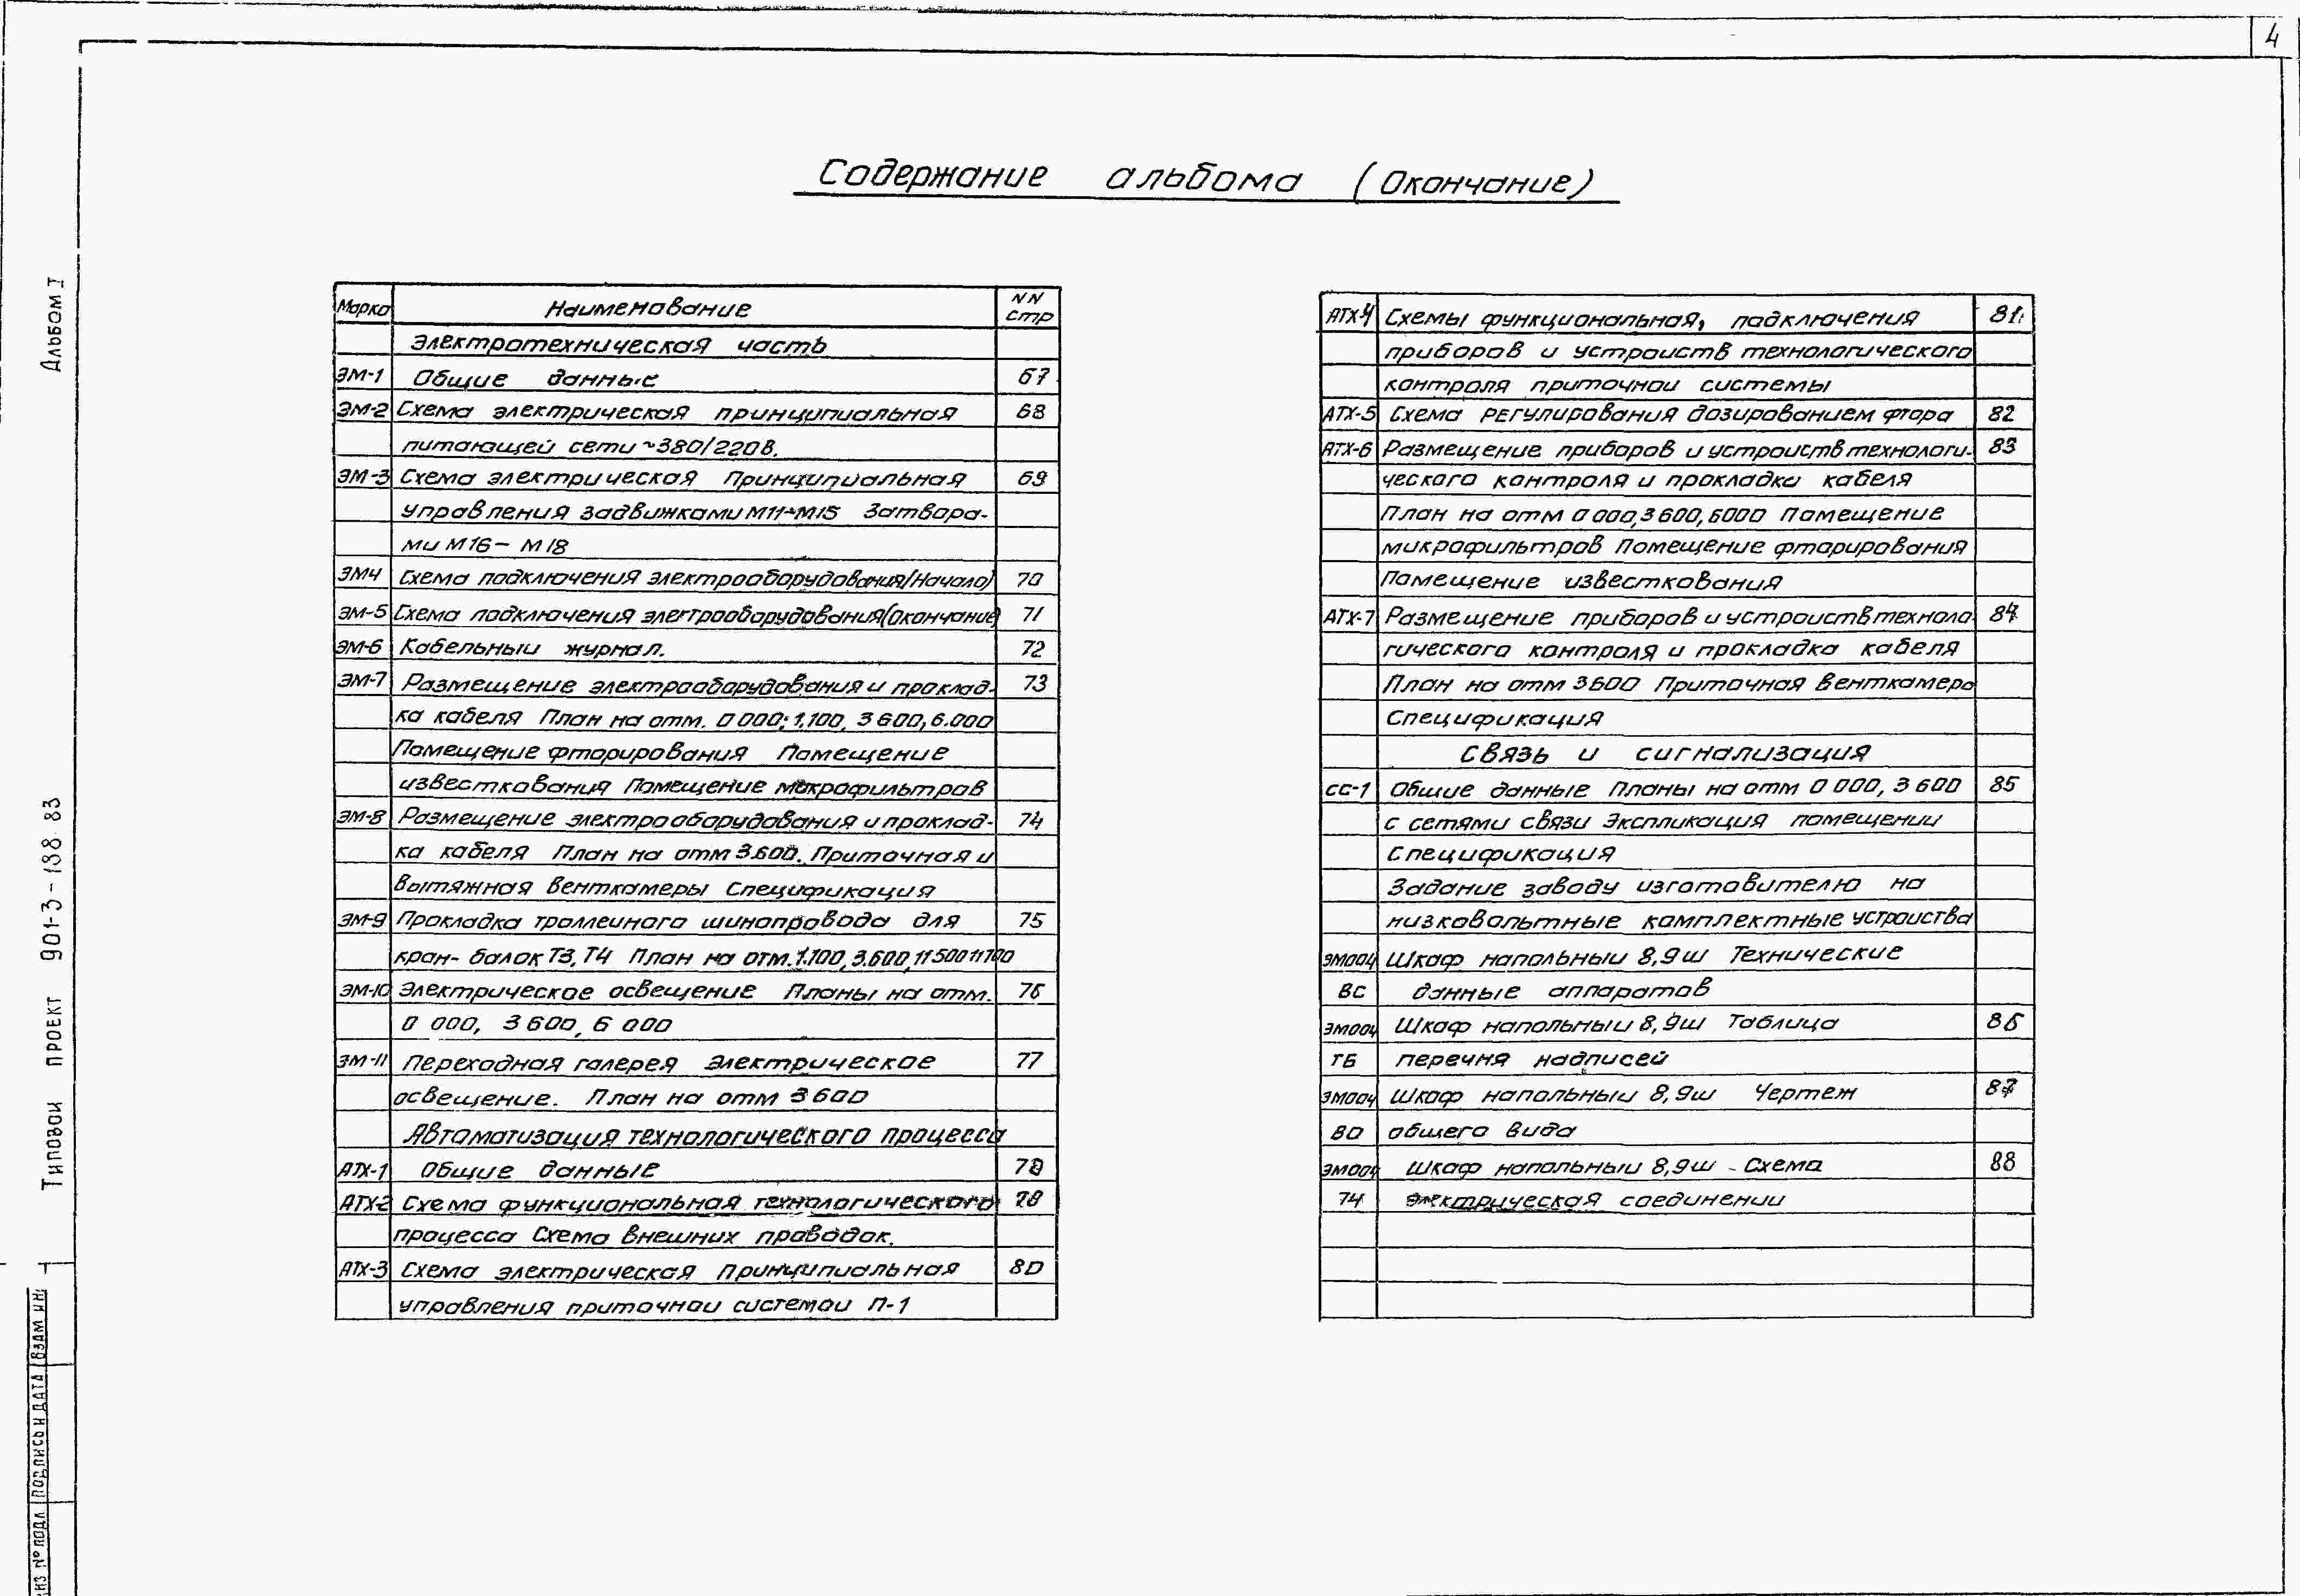 4
Содержание альбома (Окончание)
Альбом I
Типовой проект 901-3-188.83
Марка Наименование NN стр
Электротехническая часть
ЭМ-1 Общие данные 67
ЭМ-2 Схема электрическая принципиальная 68
питающей сети ~380/220В.
ЭМ-3 Схема электрическая принципиальная 69
управления задвижками М11÷М15 Затвора-
ми М16 – М18
ЭМ4 Схема подключения электрооборудования (Начало) 70
ЭМ-5 Схема подключения электрооборудования (Окончание) 71
ЭМ-6 Кабельный журнал. 72
ЭМ-7 Размещение электрооборудования и проклад- 73
ка кабеля План на отм. 0 000; 1.100, 3 600, 6.000
Помещение фторирования Помещение
известкования Помещение микрофильтров
ЭМ-8 Размещение электрооборудования и проклад- 74
ка кабеля План на отм 3.600. Приточная и
вытяжная венткамеры Спецификация
ЭМ-9 Прокладка троллейного шинопровода для 75
кран-балок Т3, Т4 План на отм. 1.100, 3.600, 11500 11700
ЭМ-10 Электрическое освещение Планы на отм. 76
0 000, 3 600, 6 000
ЭМ-11 Переходная галерея Электрическое 77
освещение. План на отм 3 600
Автоматизация технологического процесса
АТХ-1 Общие данные 78
АТХ-2 Схема функциональная технологического
процесса Схема внешних проводок.
АТХ-3 Схема электрическая принципиальная 80
управления приточной системой П-1
АТХ-4 Схемы функциональная, подключения 81
приборов и устройств технологического
контроля приточной системы
АТХ-5 Схема регулирования дозированием фтора 82
АТХ-6 Размещение приборов и устройств технологи- 83
ческого контроля и прокладка кабеля
План на отм 0 000, 3 600, 6000 Помещение
микрофильтров Помещение фторирования
Помещение известкования
АТХ-7 Размещение приборов и устройств техноло- 84
гического контроля и прокладка кабеля
План на отм 3600 Приточная венткамера
Спецификация
Связь и сигнализация
СС-1 Общие данные Планы на отм 0 000, 3 600 85
с сетями связи Экспликация помещений
Спецификация
Задание заводу изготовителю на
низковольтные комплектные устройства
ЭМ004 Шкаф напольный 8,9ш Технические
ВС данные аппаратов
ЭМ004 Шкаф напольный 8,9ш Таблица 86
ТБ перечня надписей
ЭМ004 Шкаф напольный 8,9ш Чертеж 87
ВО общего вида
ЭМ004 Шкаф напольный 8,9ш - Схема 88
74 электрическая соединений
Инв № подл Подпись и дата Взам инв